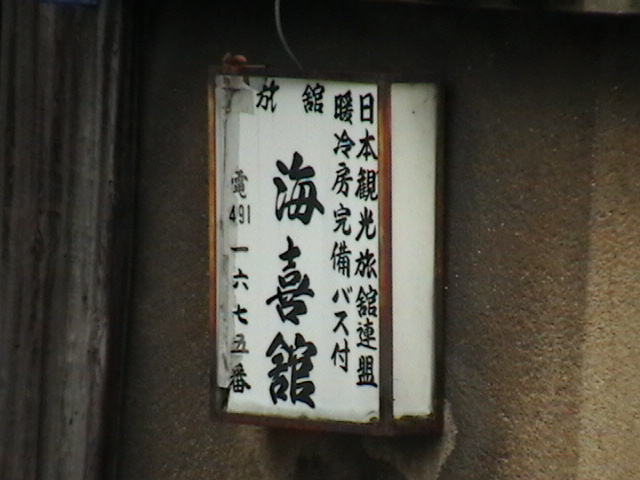 日本観光旅館連盟
暖冷房完備バス付
旅館
海喜館
電491一六七五番